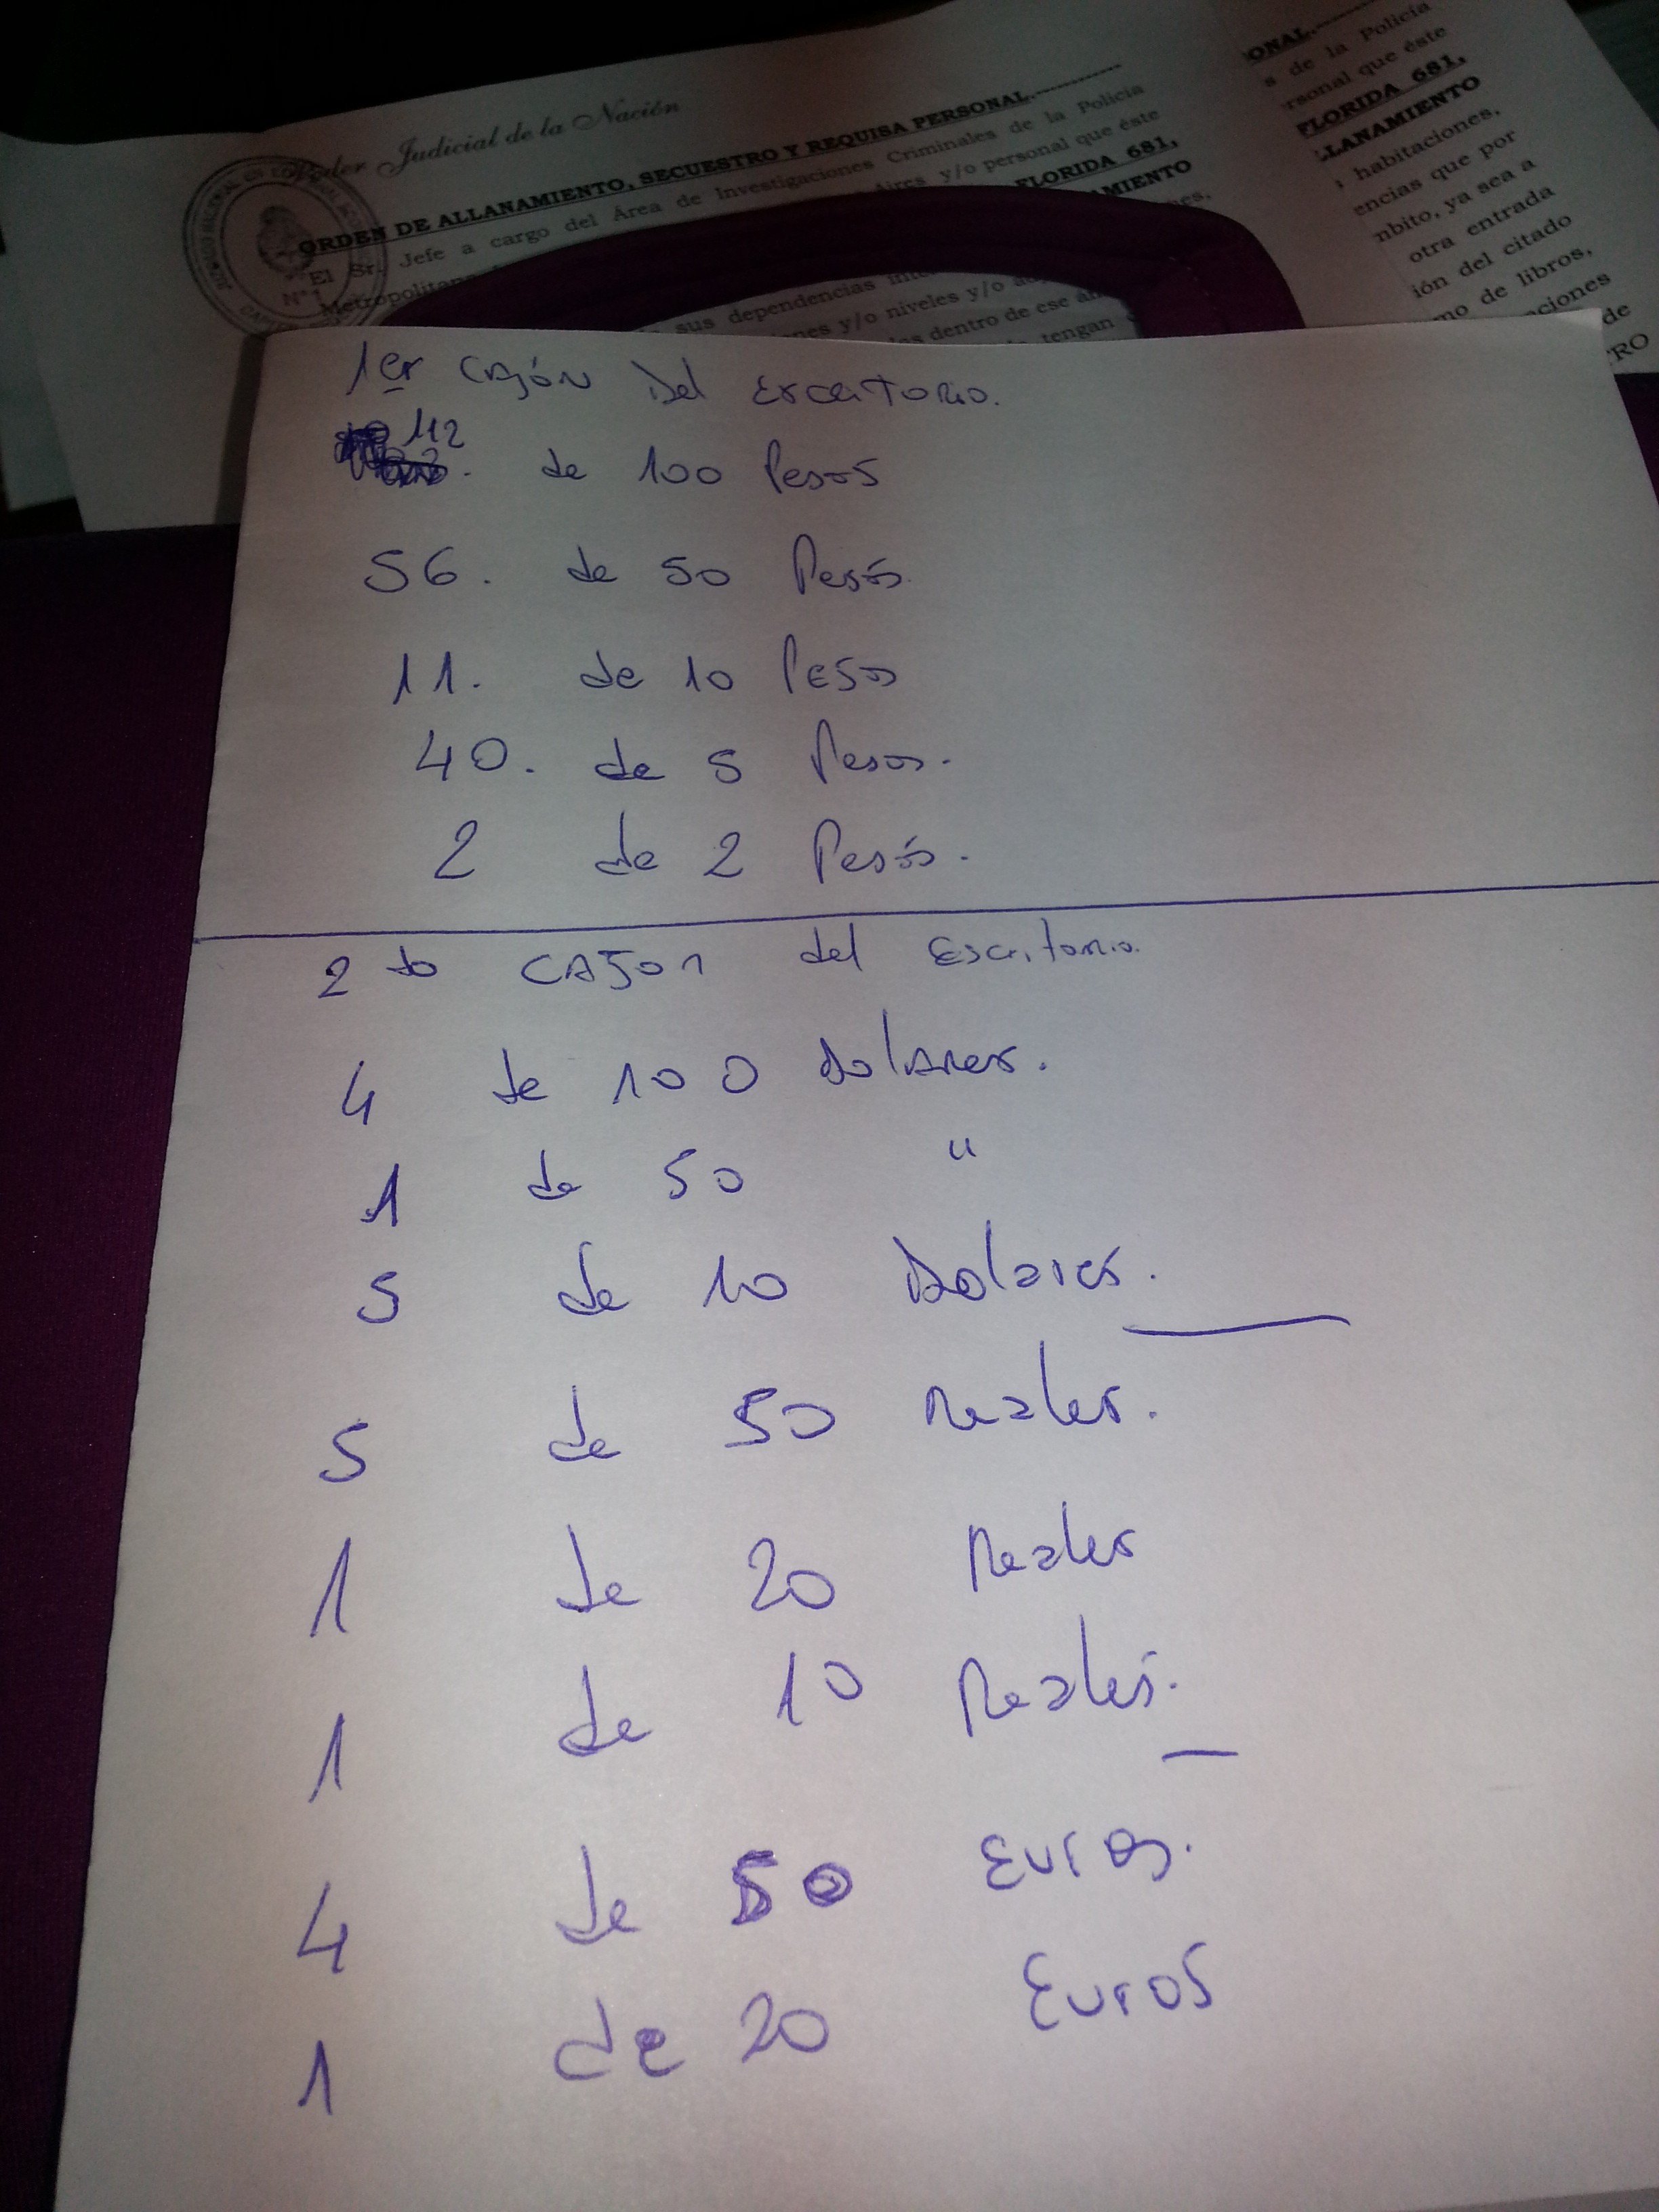 Poder Judicial de la Nación
ORDEN DE ALLANAMIENTO, SECUESTRO Y REQUISA PERSONAL.-----------
El Sr. Jefe a cargo del Área de Investigaciones Criminales de la Policía
Metropolitana Aires y/o personal que éste
FLORIDA 681,
AMIENTO
sus dependencias
y/o niveles y/o
dentro de ese
tengan
ONAL.-----------
s de la Policía
rsonal que éste
FLORIDA 681,
LLANAMIENTO
habitaciones,
encias que por
mbito, ya sea a
otra entrada
ión del citado
mo de libros,
aciones
de
TRO
1er cajón del escritorio.
112
. de 100 Pesos
56. de 50 Pesos.
11. de 10 Pesos
40. de 5 Pesos.
2 de 2 Pesos.
2do CAJON del Escritorio.
4 de 100 Dolares.
1 de 50 "
5 de 10 Dolares.
5 de 50 Reales.
1 de 20 Reales
1 de 10 Reales.
4 de 50 Euros.
1 de 20 Euros